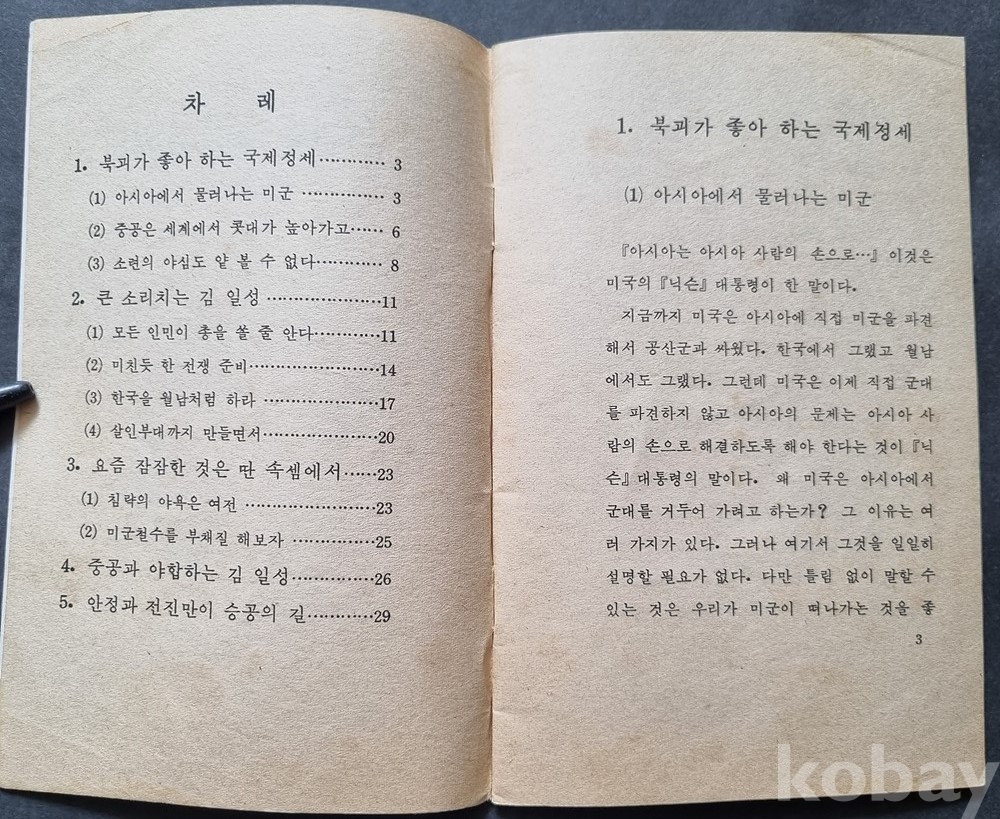 차 레
1. 북괴가 좋아 하는 국제정세………… 3
(1) 아시아에서 물러나는 미군 …………… 3
(2) 중공은 세계에서 콧대가 높아가고…… 6
(3) 소련의 야심도 얕 볼 수 없다………… 8
2. 큰 소리치는 김 일성 …………………11
(1) 모든 인민이 총을 쏠 줄 안다…………11
(2) 미친듯 한 전쟁 준비……………………14
(3) 한국을 월남처럼 하라 …………………17
(4) 살인부대까지 만들면서…………………20
3. 요즘 잠잠한 것은 딴 속셈에서……23
(1) 침략의 야욕은 여전 ……………………23
(2) 미군철수를 부채질 해보자 ……………25
4. 중공과 야합하는 김 일성……………26
5. 안정과 전진만이 승공의 길…………29
1. 북괴가 좋아 하는 국제정세
(1) 아시아에서 물러나는 미군
『아시아는 아시아 사람의 손으로…』 이것은
미국의 『닉슨』 대통령이 한 말이다.
지금까지 미국은 아시아에 직접 미군을 파견
해서 공산군과 싸웠다. 한국에서 그랬고 월남
에서도 그랬다. 그런데 미국은 이제 직접 군대
를 파견하지 않고 아시아의 문제는 아시아 사
람의 손으로 해결하도록 해야 한다는 것이 『닉
슨』 대통령의 말이다. 왜 미국은 아시아에서
군대를 거두어 가려고 하는가? 그 이유는 여
러 가지가 있다. 그러나 여기서 그것을 일일히
설명할 필요가 없다. 다만 틀림 없이 말할 수
있는 것은 우리가 미군이 떠나가는 것을 좋
3
kobay